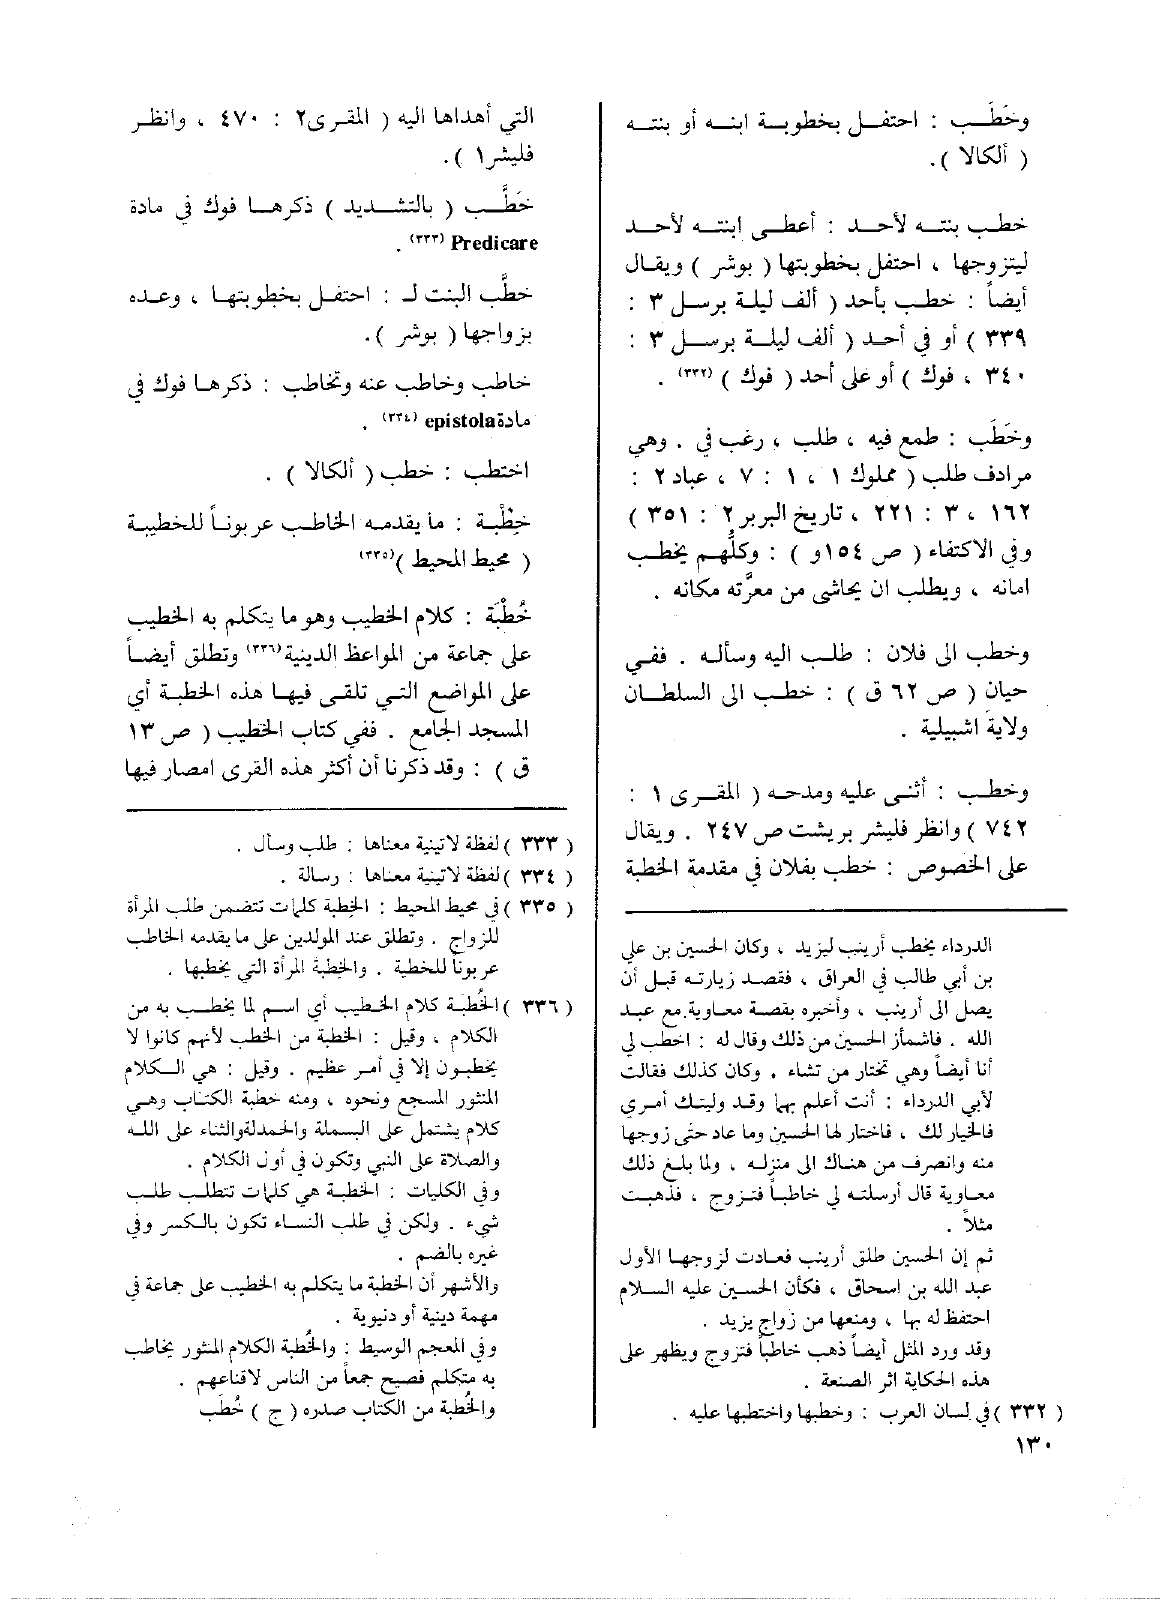 وخَطَب : احتفل بخطوبة ابنه أو بنته
( ألكالا ).
خطب بنته لأحد : أعطى ابنته لأحد
ليتزوجها ، احتفل بخطوبتها ( بوشر ) ويقال
أيضاً : خطب بأحد ( ألف ليلة برسل ٣ :
٣٣٩ ) أو في أحد ( ألف ليلة برسل ٣ :
٣٤٠ ، فوك ) أو على أحد ( فوك ) (٣٣٢) .
وخَطَب : طمع فيه ، طلب ، رغب في . وهي
مرادف طلب ( مملوك ١ ، ١ : ٧ ، عباد ٢ :
١٦٢ ، ٣ : ٢٢١ ، تاريخ البربر ٢ : ٣٥١ )
وفي الاكتفاء ( ص ١٥٤و ) : وكلُّهم يخطب
امانه ، ويطلب ان يحاشى من معرَّته مكانه .
وخطب الى فلان : طلب اليه وسأله . ففي
حيان ( ص ٦٢ ق ) : خطب الى السلطان
ولايةَ اشبيلية .
وخطب : أثنى عليه ومدحه ( المقرى ١ :
٧٤٢ ) وانظر فليشر بريشت ص ٢٤٧ . ويقال
على الخصوص : خطب بفلان في مقدمة الخطبة
الدرداء يخطب أرينب ليزيد ، وكان الحسين بن علي
بن أبي طالب في العراق ، فقصد زيارته قبل أن
يصل الى أرينب ، وأخبره بقصة معاوية مع عبد
الله . فاشمأز الحسين من ذلك وقال له : اخطب لي
أنا أيضاً وهي تختار من تشاء . وكان كذلك فقالت
لأبي الدرداء : أنت أعلم بها وقد وليتك أمري
فالخيار لك ، فاختار لها الحسين وما عاد حتى زوجها
منه وانصرف من هناك الى منزله ، ولما بلغ ذلك
معاوية قال أرسلته لي خاطباً فتزوج ، فذهبت
مثلاً .
ثم إن الحسين طلق أرينب فعادت لزوجها الأول
عبد الله بن اسحاق ، فكأن الحسين عليه السلام
احتفظ له بها ، ومنعها من زواج يزيد .
وقد ورد المثل أيضاً ذهب خاطباً فتزوج ويظهر على
هذه الحكاية اثر الصنعة .
( ٣٣٢ ) في لسان العرب : وخطبها واختطبها عليه .
١٣٠
التي أهداها اليه ( المقرى ٢ : ٤٧٠ ، وانظر
فليشر ١ ).
خَطَّب ( بالتشديد ) ذكرها فوك في مادة
Predicare (٣٣٣) .
خطَّب البنت لـ : احتفل بخطوبتها ، وعده
بزواجها ( بوشر ).
خاطب وخاطب عنه وتخاطب : ذكرها فوك في
مادة epistola (٣٣٤) .
اختطب : خطب ( ألكالا ) .
خِطْبة : ما يقدمه الخاطب عربوناً للخطيبة
( محيط المحيط )(٣٣٥)
خُطْبَة : كلام الخطيب وهو ما يتكلم به الخطيب
على جماعة من المواعظ الدينية (٣٣٦) وتطلق أيضاً
على المواضع التي تلقى فيها هذه الخطبة أي
المسجد الجامع . ففي كتاب الخطيب ( ص ١٣
ق ) : وقد ذكرنا أن أكثر هذه القرى امصار فيها
( ٣٣٣ ) لفظة لاتينية معناها : طلب وسأل .
( ٣٣٤ ) لفظة لاتينية معناها : رسالة .
( ٣٣٥ ) في محيط المحيط : الخِطبة كلمات تتضمن طلب المرأة
للزواج . وتطلق عند المولدين على ما يقدمه الخاطب
عربوناً للخطبة . والخطبة المرأة التي يخطبها .
( ٣٣٦ ) الخُطبة كلام الخطيب أي اسم لما يخطب به من
الكلام ، وقيل : الخطبة من الخطب لأنهم كانوا لا
يخطبون إلا في أمر عظيم . وقيل : هي الكلام
المنثور المسجع ونحوه ، ومنه خطبة الكتاب وهي
كلام يشتمل على البسملة والحمدلة والثناء على الله
والصلاة على النبي وتكون في أول الكلام .
وفي الكليات : الخطبة هي كلمات تتطلب طلب
شيء . ولكن في طلب النساء تكون بالكسر وفي
غيره بالضم .
والأشهر أن الخطبة ما يتكلم به الخطيب على جماعة في
مهمة دينية أو دنيوية .
وفي المعجم الوسيط : والخُطبة الكلام المنثور يخاطب
به متكلم فصيح جمعاً من الناس لاقناعهم .
والخُطبة من الكتاب صدره ( ج ) خُطَب